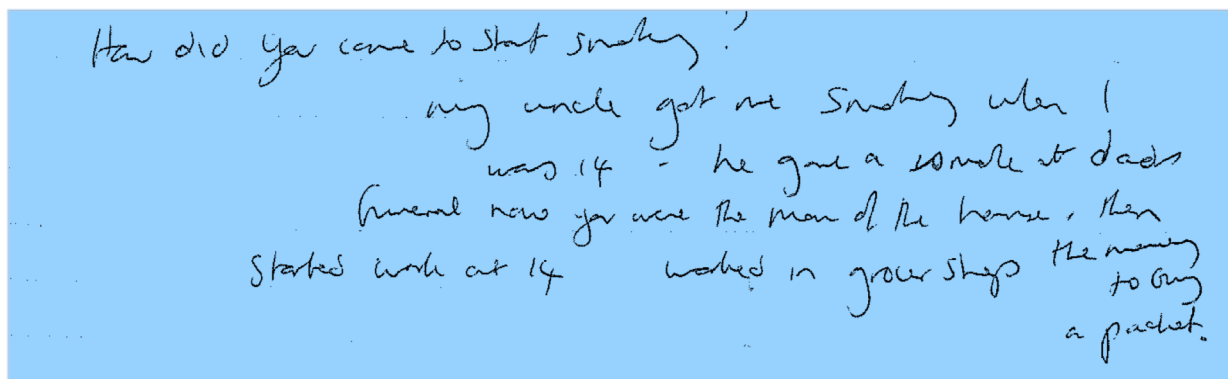 How did you come to start smoking?
my uncle got me smoking when I
was 14 - he gave a smoke at dads
funeral now you were the man of the house, then
started work at 14 worked in grocer shops the money
to buy
a packet.